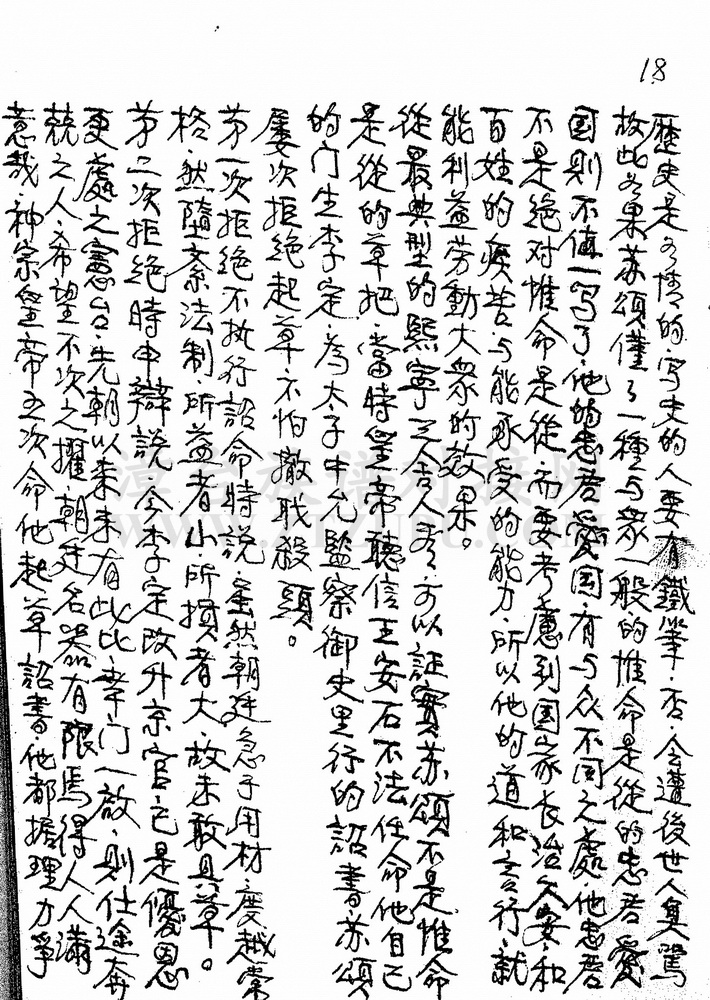 18
歷史是無情的，寫史的人要有鐵筆，否，会遭後世人臭駡
故此如果苏頌僅々一種与眾一般的惟命是從的忠君愛
国則不值一写了，他的忠君愛国，有与众不同之處，他忠君
不是绝对惟命是從，而要考慮到国家长治久安，和
百姓的疾苦，与能承受的能力，所以他的道和言行，就
能利益劳動大眾的效果。
從最典型的熙寧三舍人，可以証實苏頌不是惟命
是從的草把，當時皇帝聽信王安石不法任命他自己
的门生李定，为太子中允監察御史里行的詔書，苏頌
屡次拒绝起草，不怕撤职殺頭。
第一次拒绝不执行詔命時說，虽然朝廷急于用材，度越常
格，然墮紊法制，所益者小，所損者大，故未敢具草。
第二次拒絶時申辯說，今李定改升京官，已是優恩
更處之憲台，先朝以来未有此比，幸门一啟，則仕途奔
兢之人，希望不次之擢，朝廷名器有限，焉得人人滿
意哉，神宗皇帝五次命他起草詔書他都據理力爭
漳台族谱对接网